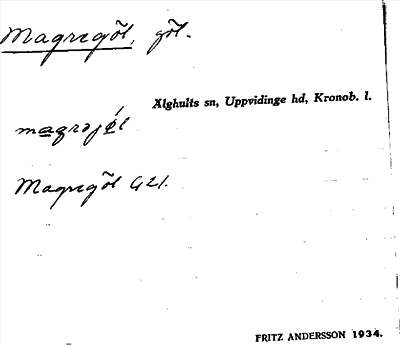 Magregöl, göl.
Älghults sn, Uppvidinge hd, Kronob. l.
magrəjø̀l
Magregöl G21.
FRITZ ANDERSSON 1934.